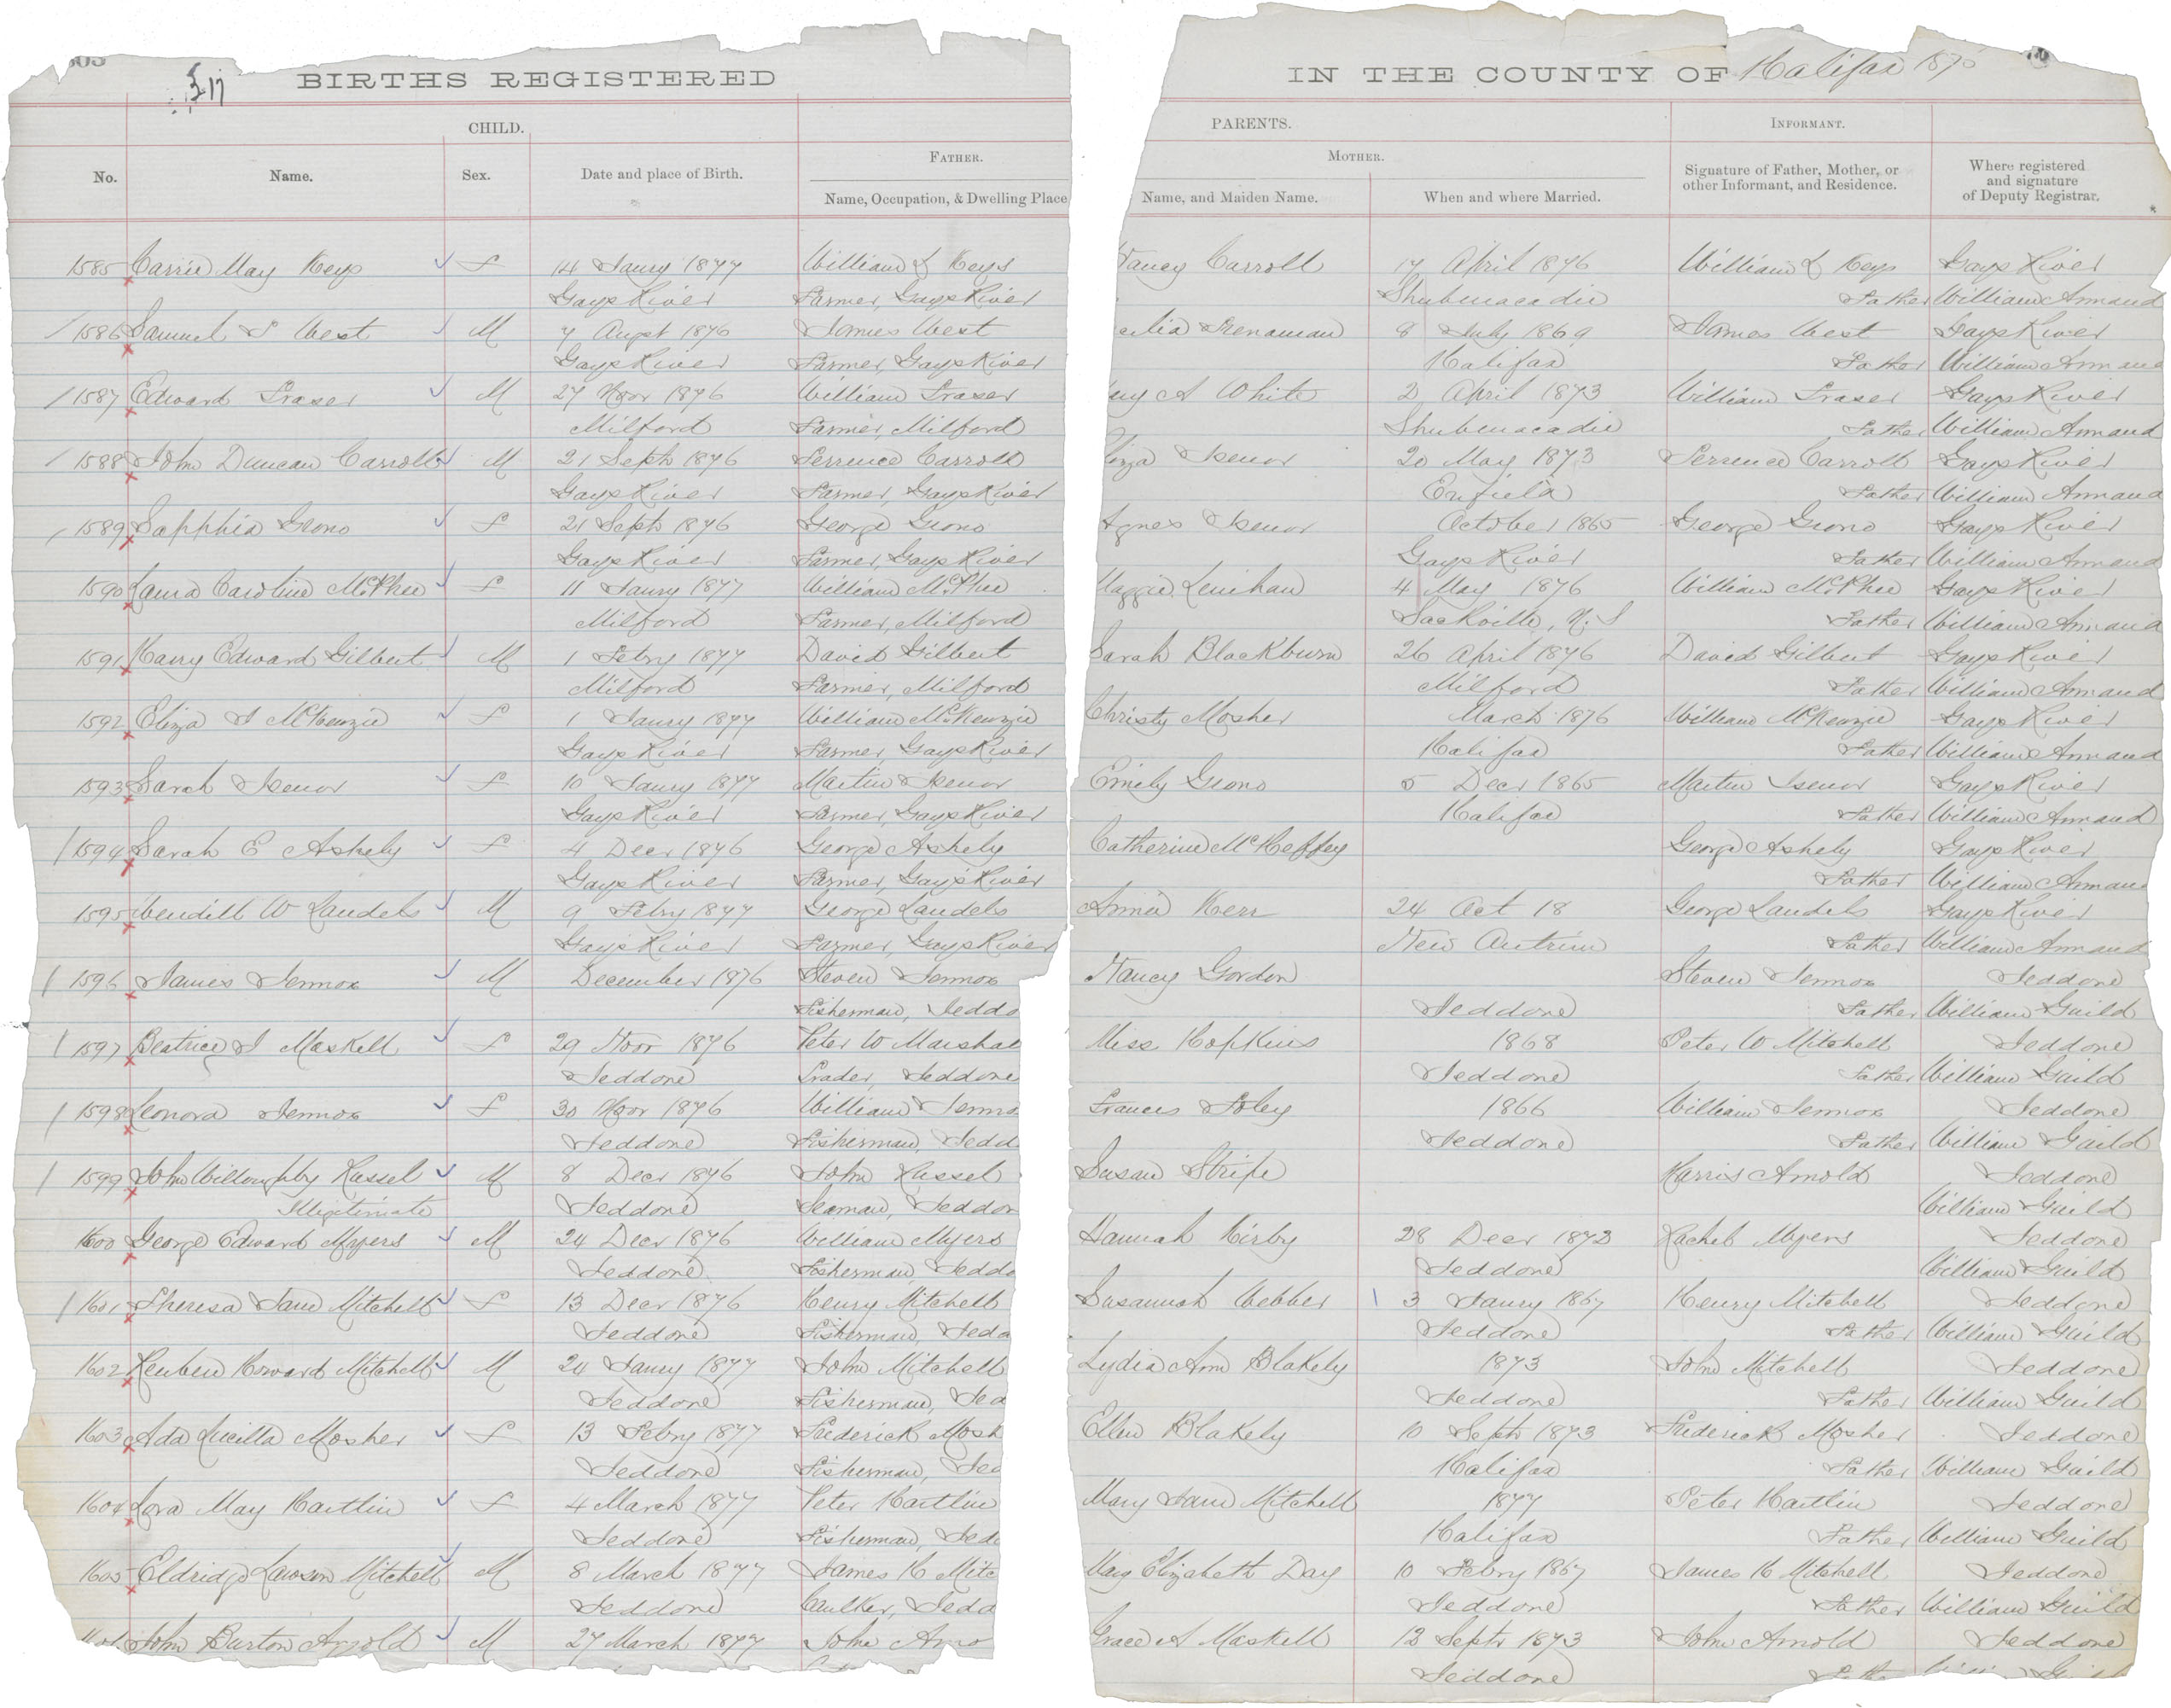 BIRTHS REGISTERED IN THE COUNTY OF Halifax
CHILD. PARENTS. INFORMANT.
No. Name. Sex. Date and place of Birth. FATHER. MOTHER.
Name, Occupation, & Dwelling Place Name, and Maiden Name. When and where Married. Signature of Father, Mother, or other Informant, and Residence. Where registered and signature of Deputy Registrar.
1585 Carrie May Keys f 14 Jaury 1877 William L Keys Carroll 17 April 1876 William L Keys Gays River
Gays River Farmer, Gays River Shubenacadie Father William Annand
1586 Samuel S West M 7 Augst 1876 James West 8 July 1869 James West Gays River
Gays River Farmer, Gays River Halifax Father William Annand
1587 Edward Fraser M 27 Novr 1876 William Fraser A White 2 April 1873 William Fraser Gays River
Milford Farmer, Milford Shubenacadie Father William Annand
1588 John Duncan Carroll M 21 Septr 1876 Terrence Carroll Isenor 20 May 1873 Terrence Carroll Gays River
Gays River Farmer, Gays River Enfield Father William Annand
1589 Sapphia Grono f 21 Septr 1876 George Grono Agnes Isenor October 1865 George Grono Gays River
Gays River Farmer, Gays River Gays River Father William Annand
1590 Laura Caroline McPhee f 11 Jaury 1877 William McPhee Maggie Lenihan 4 May 1876 William McPhee Gays River
Milford Farmer, Milford Sackville, N.S Father William Annand
1591 Harry Edward Gilbert M 1 Febry 1877 David Gilbert Sarah Blackburn 26 April 1876 David Gilbert Gays River
Milford Farmer, Milford Milford Father William Annand
1592 Eliza J McKenzie f 1 Jaury 1877 William McKenzie Christy Mosher March 1876 William McKenzie Gays River
Gays River Farmer, Gays River Halifax Father William Annand
1593 Sarah Isenor f 10 Jaury 1877 Martin Isenor Emily Grono 5 Decr 1865 Martin Isenor Gays River
Gays River Farmer, Gays River Halifax Father William Annand
1594 Sarah E Ashely f 4 Decr 1876 George Ashely Catherine McHeffey George Ashely Gays River
Gays River Farmer, Gays River Father William Annand
1595 Wendill W Landels M 9 Febry 1877 George Landels Annie Kerr 24 Oct 18 George Landels Gays River
Gays River Farmer, Gays River New Antrim Father William Annand
1596 James Jennox M December 1876 Steven Jennox Nancy Gordon Steven Jennox Jeddore
Fisherman, Jeddo Jeddore Father William Guild
1597 Beatrice J Maskell f 29 Novr 1876 Peter W Marshal Miss Hopkins 1868 Peter W Mitchell Jeddore
Jeddore Trader, Jeddore Jeddore Father William Guild
1598 Leonora Jennox f 30 Novr 1876 William Jenno Frances Foley 1866 William Jennox Jeddore
Jeddore Fisherman, Jedd Jeddore Father William Guild
1599 John Willoughby Russel M 8 Decr 1876 John Russel Susan Stripe Harris Arnold Jeddore
Illigitimate Jeddore Seaman, Jeddor William Guild
1600 George Edward Myers M 24 Decr 1876 William Myers Hannah Kirby 28 Decr 1873 Rachel Myers Jeddore
Jeddore Fisherman, Jeddo Jeddore William Guild
1601 Theresa Jane Mitchell f 13 Decr 1876 Henry Mitchell Susannah Webber 3 Jaury 1867 Henry Mitchell Jeddore
Jeddore Fisherman, Jedd Jeddore Father William Guild
1602 Reuben Howard Mitchell M 24 Jaury 1877 John Mitchell Lydia Ann Blakely 1873 John Mitchell Jeddore
Jeddore Fisherman, Jed Jeddore Father William Guild
1603 Ada Lucilla Mosher f 13 Febry 1877 Frederick Mosh Ellen Blakely 10 Septr 1873 Frederick Mosher Jeddore
Jeddore Fisherman, Jed Halifax Father William Guild
1604 Lora May Hartlin f 4 March 1877 Peter Hartlin Mary Jane Mitchell 1877 Peter Hartlin Jeddore
Jeddore Fisherman, Jedd Halifax Father William Guild
1605 Eldridge Lawson Mitchell M 8 March 1877 James H Mitc Mary Elizabeth Day 10 Febry 1867 James H Mitchell Jeddore
Jeddore Caulker, Jedd Jeddore Father William Guild
John Burton Arnold M 27 March 1877 John Arno Grace A Maskell 13 Septr 1873 John Arnold Jeddore
Jeddore